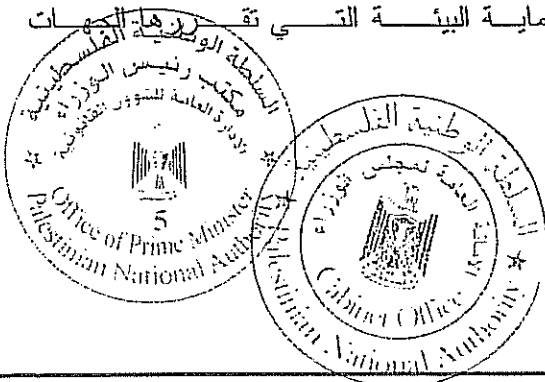 ماية البيئة التي تقررها الجهات
السلطة الوطنية الفلسطينية
مكتب رئيس الوزراء
الإدارة العامة للشؤون القانونية
5
Office of Prime Minister
Palestinian National Authority
السلطة الوطنية الفلسطينية
الأمانة العامة لمجلس الوزراء
Cabinet Office
Palestinian National Authority